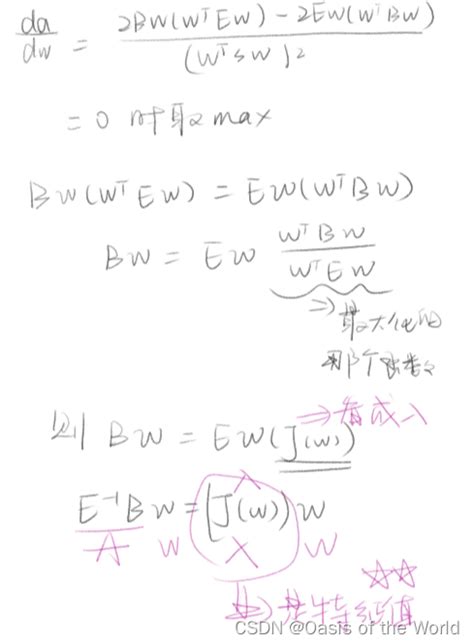 da/dw = 2Bw(wᵀEw) - 2Ew(wᵀBw) / (wᵀSw)²
= 0 时取max
Bw(wᵀEw) = Ew(wᵀBw)
Bw = Ew wᵀBw / wᵀEw
⇒ 最大化的
那个
⇒ 看成λ
则 Bw = Ew(J(w))
λ
E⁻¹Bw = (J(w))w
A w λ w
☆☆
⇒ 是特征值
CSDN @Oasis of the World